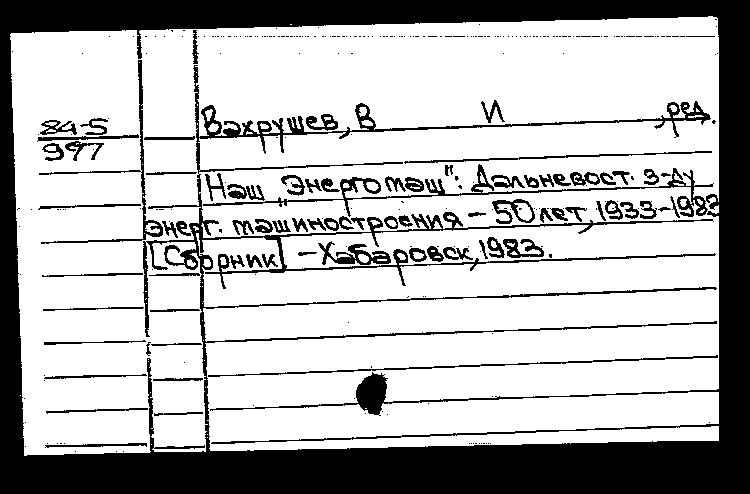 84-5
997
Вахрушев, В И , ред.
Наш „Энергомаш": Дальневост. з-ду
энерг. машиностроения – 50 лет, 1933–1983
[Сборник] – Хабаровск, 1983.